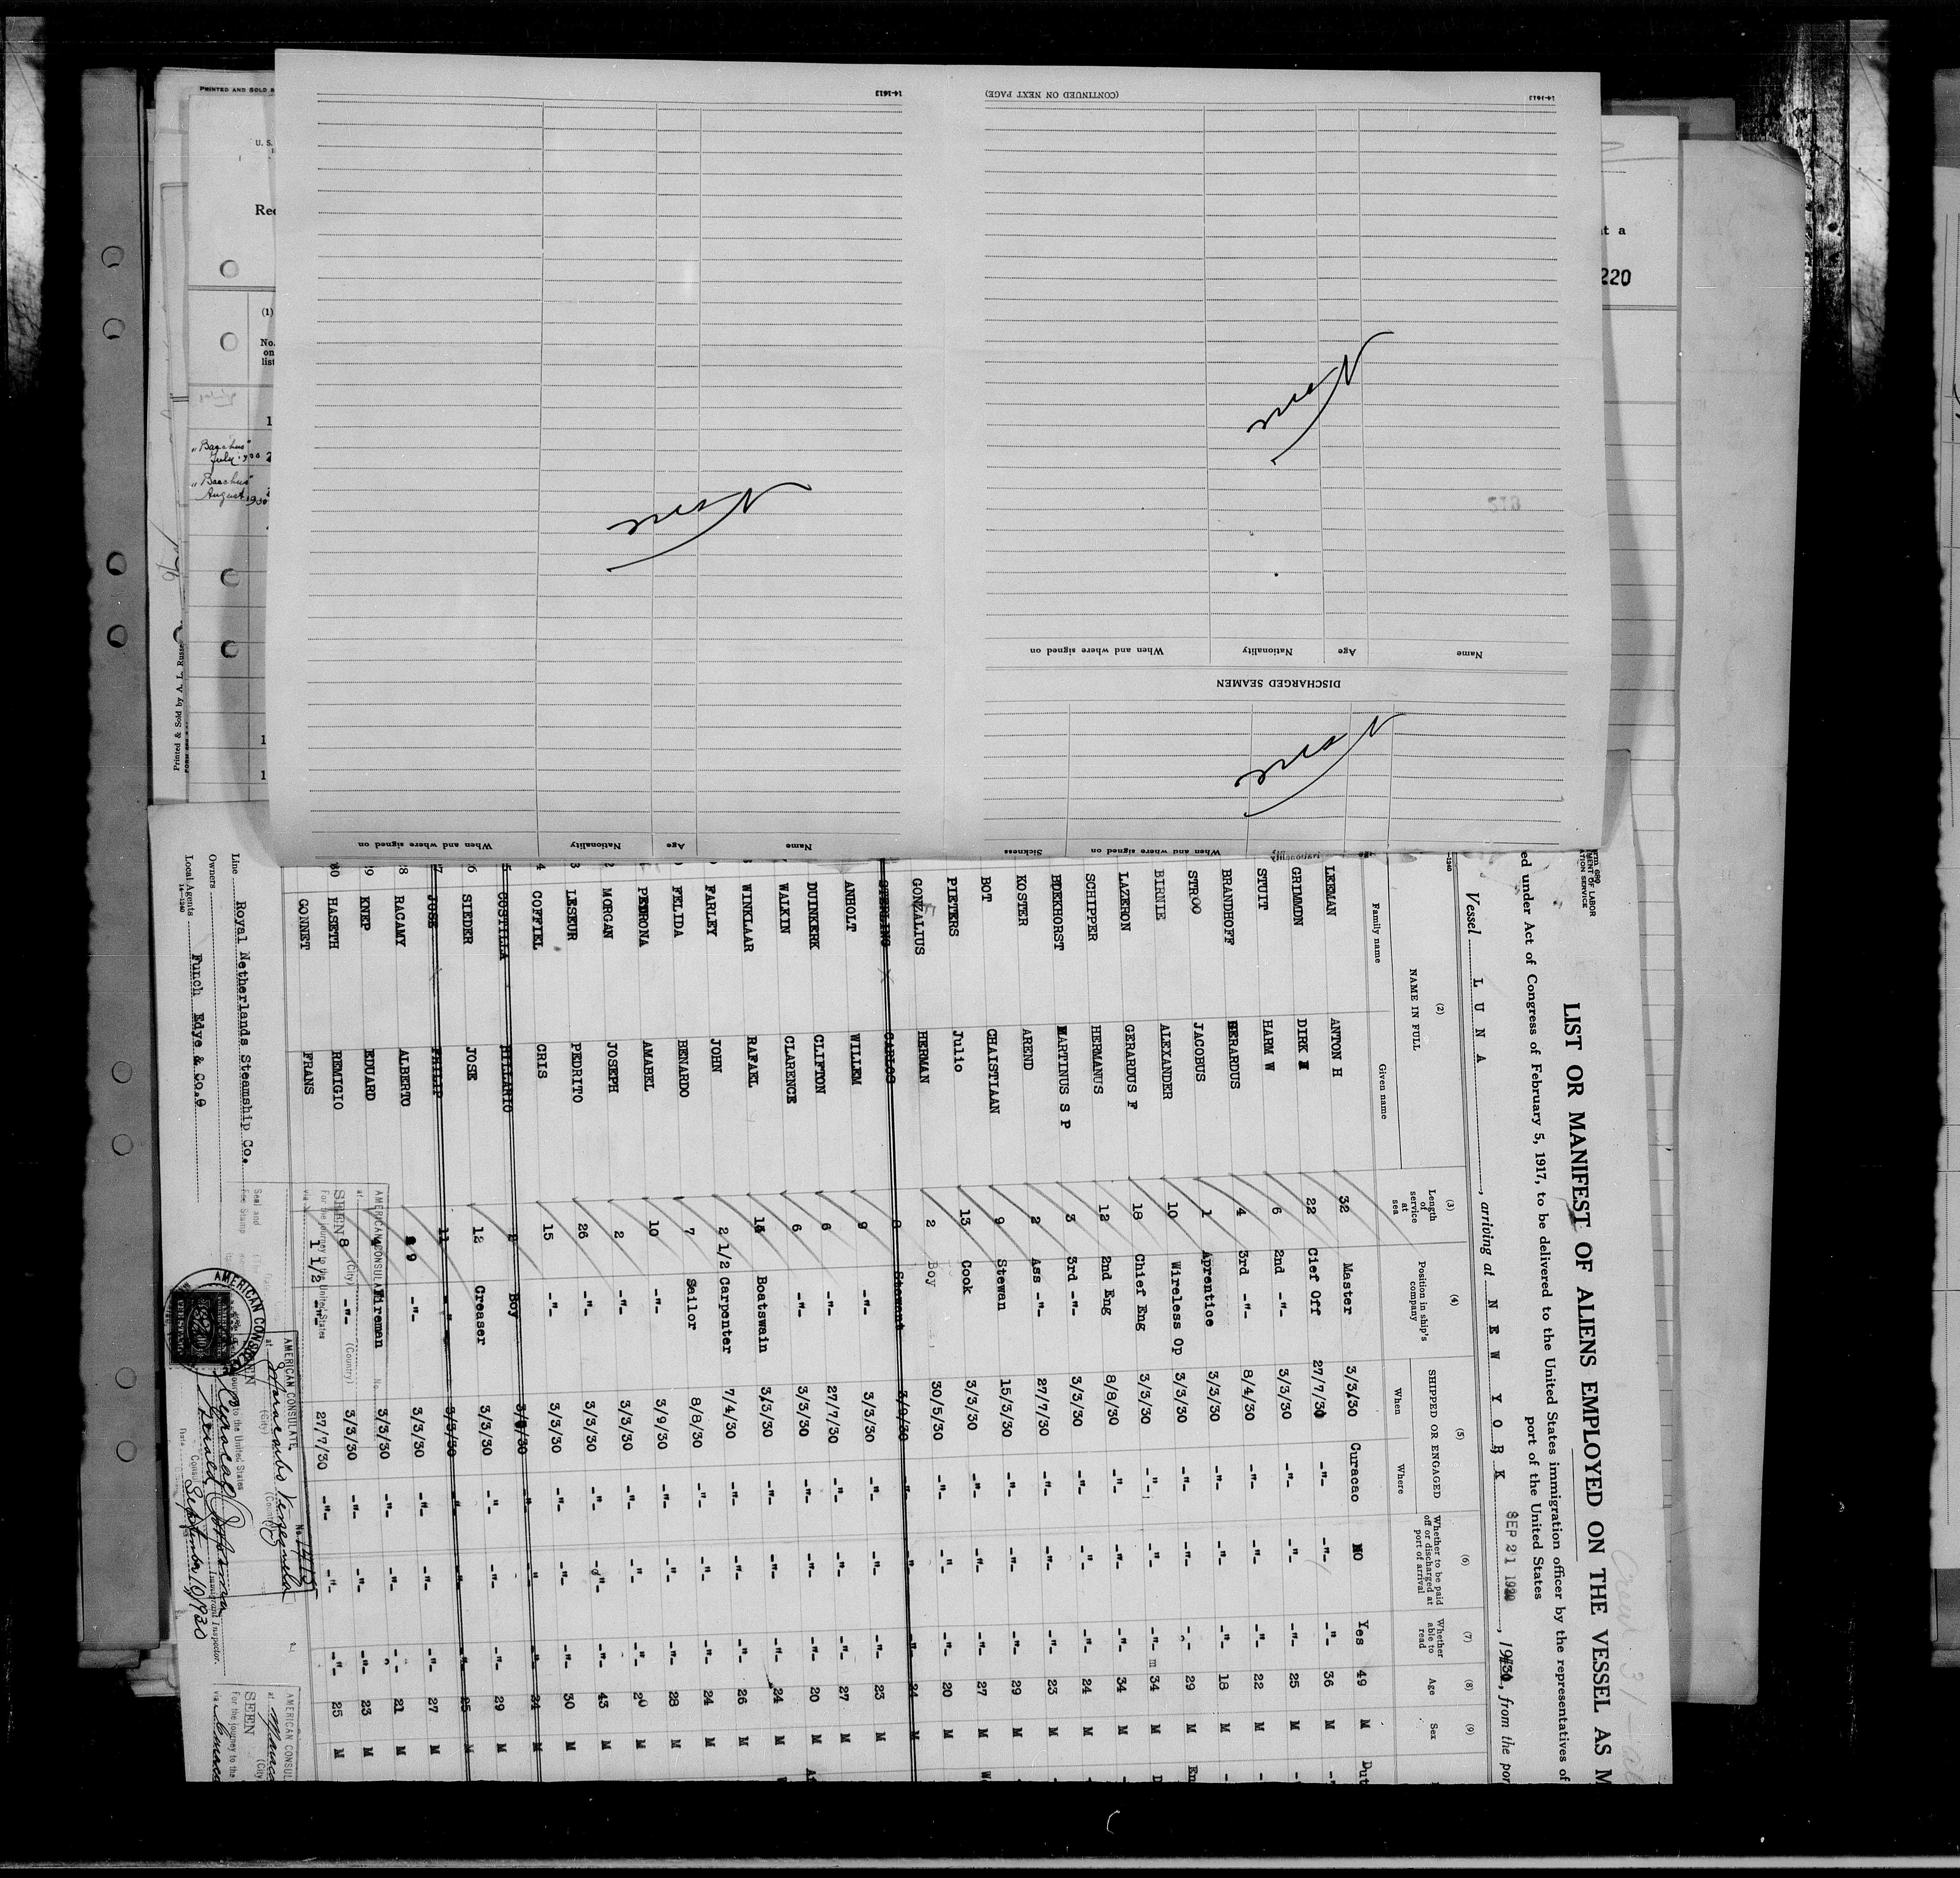 LIST OR MANIFEST OF ALIENS EMPLOYED ON THE VESSEL AS M
ed under Act of Congress of February 5, 1917, to be delivered to the United States immigration officer by the representatives of
port of the United States
Vessel L U N A, arriving at N E W Y O R K SEP 21 1930, from the por
(2) (3) (4) (5) (6) (7) (8) (9)
NAME IN FULL Length of service at sea Position in ship's company SHIPPED OR ENGAGED Whether to be paid off or discharged at port of arrival Whether able to read Age Sex
Family name Given name When Where
LEEMAN ANTON H 32 Master 3/3/30 Curacao NO Yes 49 M Dut
GRIMMDN DIRK 22 Cief Off 27/7/30 -"- -"- -"- 36 M -"
STUIT HARM W 6 2nd -"- 3/3/30 -"- -"- -"- 25 M
BRANDHOFF GERARDUS 4 3rd -"- 8/4/30 -"- -"- -"- 22 M
STROO JACOBUS 1 Aprentice 3/3/30 -"- -"- -"- 18 M
BIRNIE ALEXANDER 10 Wireless Op 3/3/30 -"- -"- -"- 29 M En
LAZERON GERARDUS F 18 Chief Eng 3/3/30 -"- -"- -"- 34 M D
SCHIPPER HERMANUS 12 2nd Eng 8/8/30 -"- -"- -"- 34 M
BOEKHORST MARTINUS S P 3 3rd -"- 3/3/30 -"- -"- -"- 24 M
KOSTER AREND 2 Ass -"- 27/7/30 -"- -"- -"- 23 M
BOT CHAISTIAAN 9 Stewan 15/3/30 -"- -"- -"- 29 M
PIETERS Julio 13 Cook 3/3/30 -"- -"- -"- 27 M
GONZALIUS HERMAN 2 Boy 30/5/30 -"- -"- -"- 20 M
STERLING CARLOS 8 Stewant 3/9/30 -"- -"- -"- 24 M
ANHOLT WILLEM 9 -"- 3/3/30 -"- -"- -"- 23 M
DUINKERK CLIFTON 6 -"- 27/7/30 -"- -"- -"- 27 M
WALKIN CLARENCE 6 -"- 3/3/30 -"- -"- -"- 20 M
WINKLAAR RAFAEL 14 Boatswain 3/3/30 -"- -"- -"- 24 M
FARLEY JOHN 2 1/2 Carpenter 7/4/30 -"- -"- -"- 26 M
FELIDA BENARDO 7 Sailor 8/8/30 -"- -"- -"- 24 M
PETRONA AMABEL 10 -"- 3/9/30 -"- -"- -"- 28 M
MORGAN JOSEPH 2 -"- 3/3/30 -"- -"- -"- 20 M
LESEUR PEDRITO 26 -"- 3/3/30 -"- -"- -"- 43 M
COFFIEL CRIS 15 -"- 3/3/30 -"- -"- -"- 30 M
CUSTILLA HILLARIO Boy 3/3/30 -"- -"- -"- 24 M
SIEDER JOSE 12 Greaser 3/3/30 -"- -"- -"- 29 M
JOSE PHILIP 11 -"- 3/3/30 -"- -"- -"- 25 M
RACAMY ALBERTO 9 -"- 3/3/30 -"- -"- -"- 27 M
KNEP EDUARD 4 Fireman 3/3/30 -"- -"- -"- 21 M
HASETH REMIGIO 8 -"- 3/3/30 -"- -"- -"- 23 M
GONNET FRANS 1 1/2 -"- 27/7/30 -"- -"- -"- 25 M
Line Royal Netherlands Steamship Co.
Owners
Local Agents Funch Edye & Co.
14-1240
AMERICAN CONSULATE
SEEN
For the journey to the United States
via
(City) (Country)
AMERICAN CONSULATE
at Maracaibo Venezuela
(City) (Country)
No. 1413
SEEN
September 10, 1930
Immigrant Inspector.
AMERICAN CONSUL
SEEN
For the journey to the
(CONTINUED ON NEXT PAGE)
14-1613
14-1613
None
None
None
Name Age Nationality When and where signed on
DISCHARGED SEAMEN
Name Age Nationality When and where signed on
Nationality When and where signed on Sickness
PRINTED AND SOLD
U. S.
Rec
(1)
No. on list
"Bacchus" July
"Bacchus" August 1930
Printed & Sold by A. L. Russe
t a
220